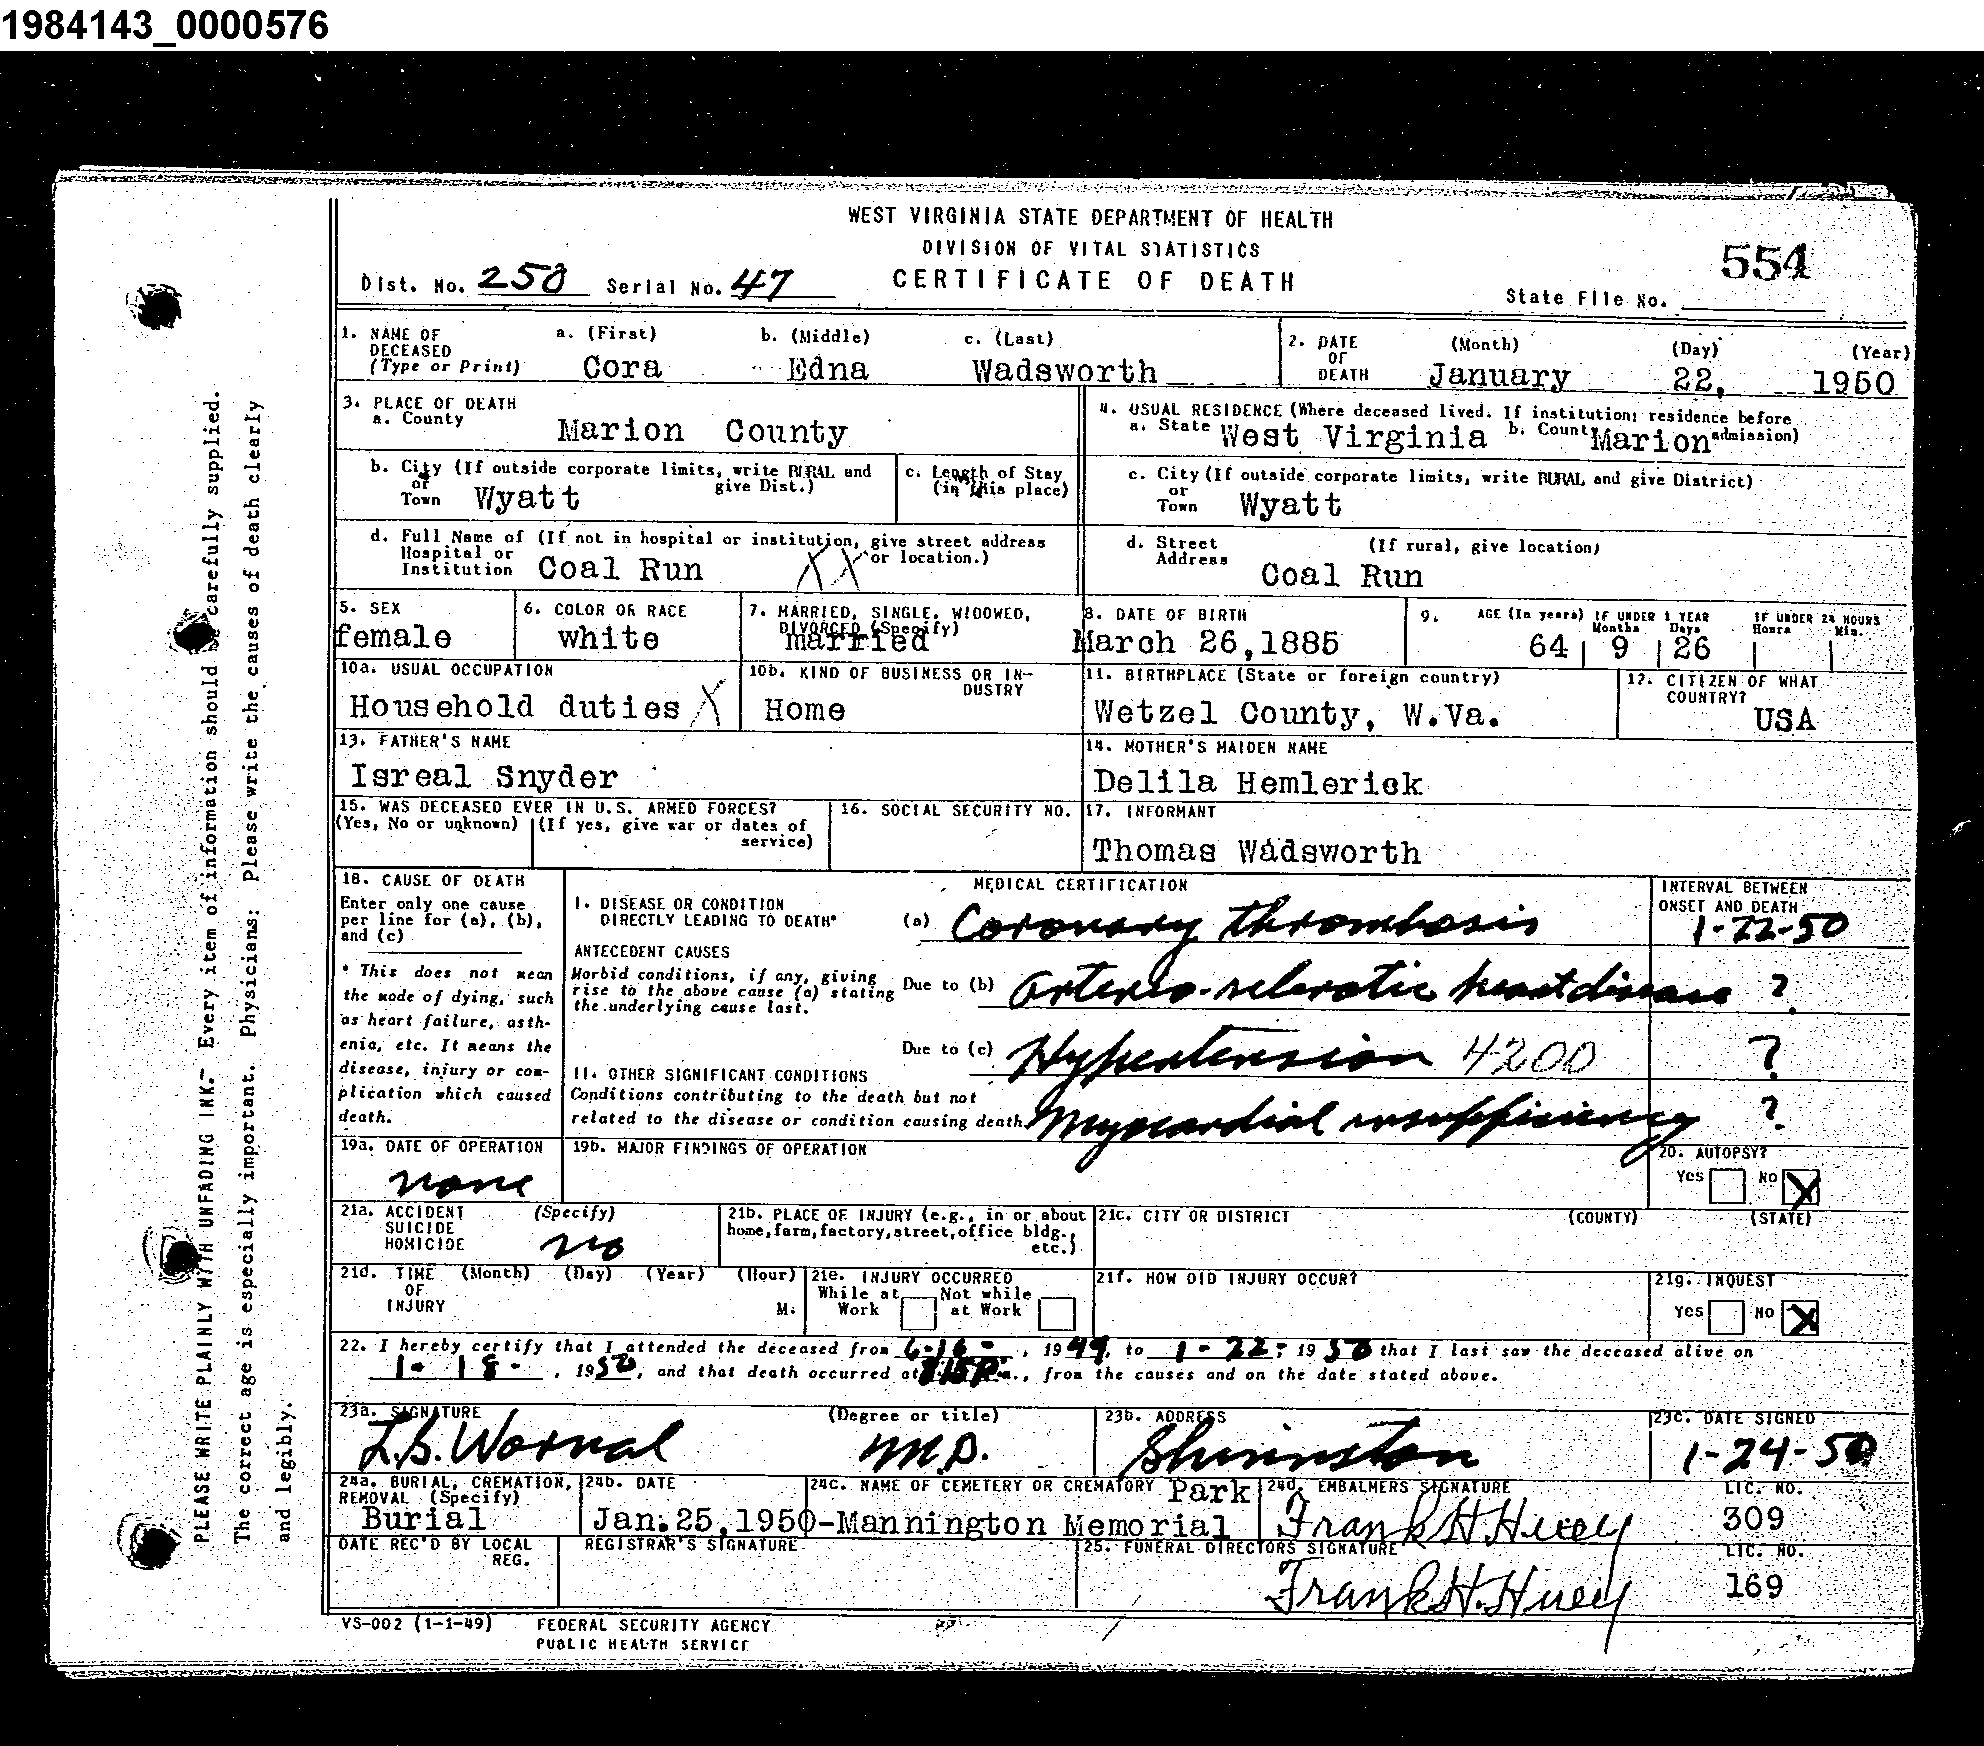 1984143_0000576
WEST VIRGINIA STATE DEPARTMENT OF HEALTH
DIVISION OF VITAL STATISTICS
CERTIFICATE OF DEATH
554
Dist. No. 250 Serial No. 47
State File No.
1. NAME OF DECEASED (Type or Print)
a. (First) b. (Middle) c. (Last)
Cora Edna Wadsworth
2. DATE OF DEATH (Month) (Day) (Year)
January 22, 1950
3. PLACE OF DEATH
a. County
Marion County
4. USUAL RESIDENCE (Where deceased lived. If institution: residence before admission)
a. State West Virginia b. County Marion
b. City (If outside corporate limits, write RURAL and give Dist.)
or Town Wyatt
c. Length of Stay (in this place)
c. City (If outside corporate limits, write RURAL and give District)
or Town Wyatt
d. Full Name of (If not in hospital or institution, give street address or location.)
Hospital or Institution Coal Run XX
d. Street Address (If rural, give location)
Coal Run
5. SEX
female
6. COLOR OR RACE
white
7. MARRIED, SINGLE, WIDOWED, DIVORCED (Specify)
married
8. DATE OF BIRTH
March 26,1885
9. AGE (In years) IF UNDER 1 YEAR Months Days IF UNDER 24 HOURS Hours Min.
64 9 26
10a. USUAL OCCUPATION
Household duties X
10b. KIND OF BUSINESS OR INDUSTRY
Home
11. BIRTHPLACE (State or foreign country)
Wetzel County, W.Va.
12. CITIZEN OF WHAT COUNTRY?
USA
13. FATHER'S NAME
Isreal Snyder
14. MOTHER'S MAIDEN NAME
Delila Hemlerick
15. WAS DECEASED EVER IN U.S. ARMED FORCES?
(Yes, No or unknown) (If yes, give war or dates of service)
16. SOCIAL SECURITY NO.
17. INFORMANT
Thomas Wadsworth
18. CAUSE OF DEATH
Enter only one cause per line for (a), (b), and (c)
* This does not mean the mode of dying, such as heart failure, asthenia, etc. It means the disease, injury or complication which caused death.
MEDICAL CERTIFICATION
INTERVAL BETWEEN ONSET AND DEATH
I. DISEASE OR CONDITION DIRECTLY LEADING TO DEATH*
(a) Coronary thrombosis 1-22-50
ANTECEDENT CAUSES
Morbid conditions, if any, giving rise to the above cause (a) stating the underlying cause last.
Due to (b) arterio-sclerotic heart disease ?
Due to (c) Hypertension 4200 ?
II. OTHER SIGNIFICANT CONDITIONS
Conditions contributing to the death but not related to the disease or condition causing death.
Myocardial insufficiency ?
19a. DATE OF OPERATION
none
19b. MAJOR FINDINGS OF OPERATION
20. AUTOPSY?
Yes No X
21a. ACCIDENT SUICIDE HOMICIDE (Specify)
no
21b. PLACE OF INJURY (e.g., in or about home, farm, factory, street, office bldg., etc.)
21c. CITY OR DISTRICT (COUNTY) (STATE)
21d. TIME OF INJURY (Month) (Day) (Year) (Hour) M.
21e. INJURY OCCURRED
While at Work Not while at Work
21f. HOW DID INJURY OCCUR?
21g. INQUEST
Yes No X
22. I hereby certify that I attended the deceased from 6-16-, 1949, to 1-22-, 1950 that I last saw the deceased alive on
1-18-, 1950, and that death occurred at m., from the causes and on the date stated above.
23a. SIGNATURE (Degree or title)
L.S. Wornal M.D.
23b. ADDRESS
Shinnston
23c. DATE SIGNED
1-24-50
24a. BURIAL, CREMATION, REMOVAL (Specify)
Burial
24b. DATE
Jan.25,1950
24c. NAME OF CEMETERY OR CREMATORY
-Mannington Memorial Park
24d. EMBALMERS SIGNATURE LIC. NO.
Frank H Huey 309
DATE REC'D BY LOCAL REG.
REGISTRAR'S SIGNATURE
25. FUNERAL DIRECTORS SIGNATURE LIC. NO.
Frank H. Huey 169
VS-002 (1-1-49) FEDERAL SECURITY AGENCY
PUBLIC HEALTH SERVICE
PLEASE WRITE PLAINLY WITH UNFADING INK. Every item of information should be carefully supplied.
The correct age is especially important. Physicians: Please write the causes of death clearly
and legibly.